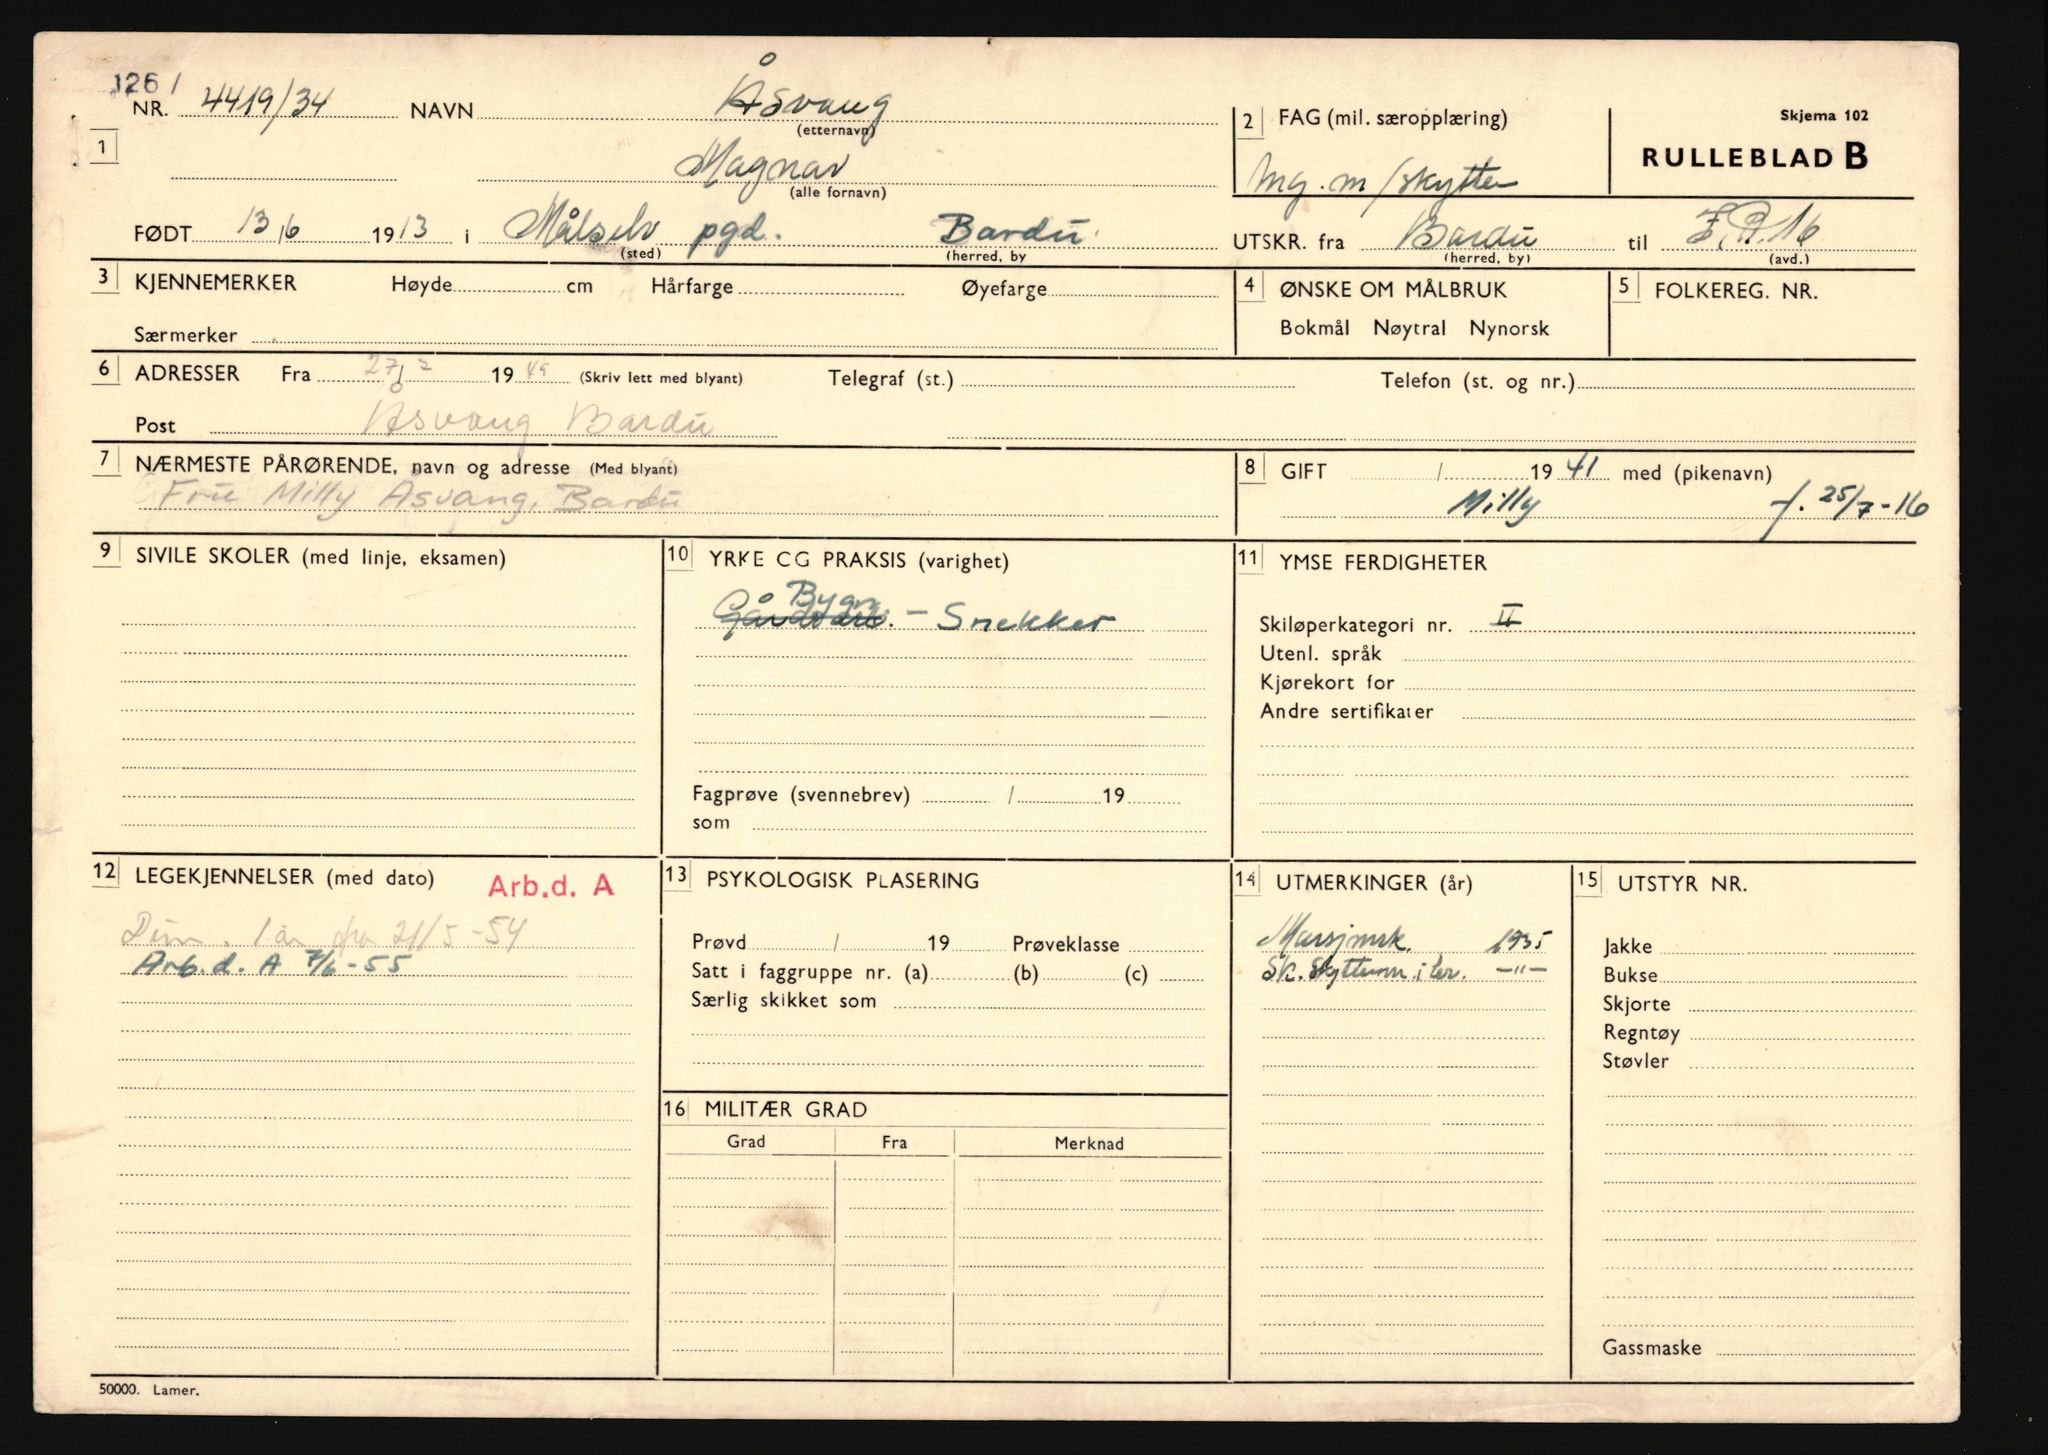 1261
NR. 4419/34 NAVN Åsvang
(etternavn)
1
Magnar
(alle fornavn)
FØDT 13/6 1913 i Målselv pgd. Bardu
(sted) (herred, by
2 FAG (mil. særopplæring)
Mg. m/skytter
Skjema 102
RULLEBLAD B
UTSKR. fra Bardu til I.R.16
(herred, by) (avd.)
3 KJENNEMERKER Høyde cm Hårfarge Øyefarge
Særmerker
4 ØNSKE OM MÅLBRUK
Bokmål Nøytral Nynorsk
5 FOLKEREG. NR.
6 ADRESSER Fra 27/2 1949 (Skriv lett med blyant) Telegraf (st.) Telefon (st. og nr.)
Post Åsvang Bardu
7 NÆRMESTE PÅRØRENDE, navn og adresse (Med blyant)
Fru Milly Åsvang, Bardu
8 GIFT / 1941 med (pikenavn)
Milly f. 25/7-16
9 SIVILE SKOLER (med linje, eksamen)
10 YRKE CG PRAKSIS (varighet)
Bygn.
Gårdsarb. – Snekker
Fagprøve (svennebrev) / 19
som
11 YMSE FERDIGHETER
Skiløperkategori nr. II
Utenl. språk
Kjørekort for
Andre sertifikater
12 LEGEKJENNELSER (med dato) Arb.d. A
Dim. 1 år fra 21/5-54
Arb.d. A 7/6-55
13 PSYKOLOGISK PLASERING
Prøvd / 19 Prøveklasse
Satt i faggruppe nr. (a) (b) (c)
Særlig skikket som
14 UTMERKINGER (år)
Marsjmrk. 1935
Sk. Skyttermrk. i ler. –"–
15 UTSTYR NR.
Jakke
Bukse
Skjorte
Regntøy
Støvler
Gassmaske
16 MILITÆR GRAD
Grad Fra Merknad
50000. Lamer.